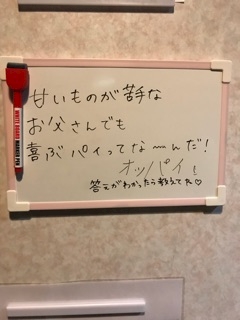 甘いものが苦手な
お父さんでも
喜ぶパイってな〜んだ!
オッパイ!
答えがわかったら教えてね♡
WHITE BOARD MARKER PEN